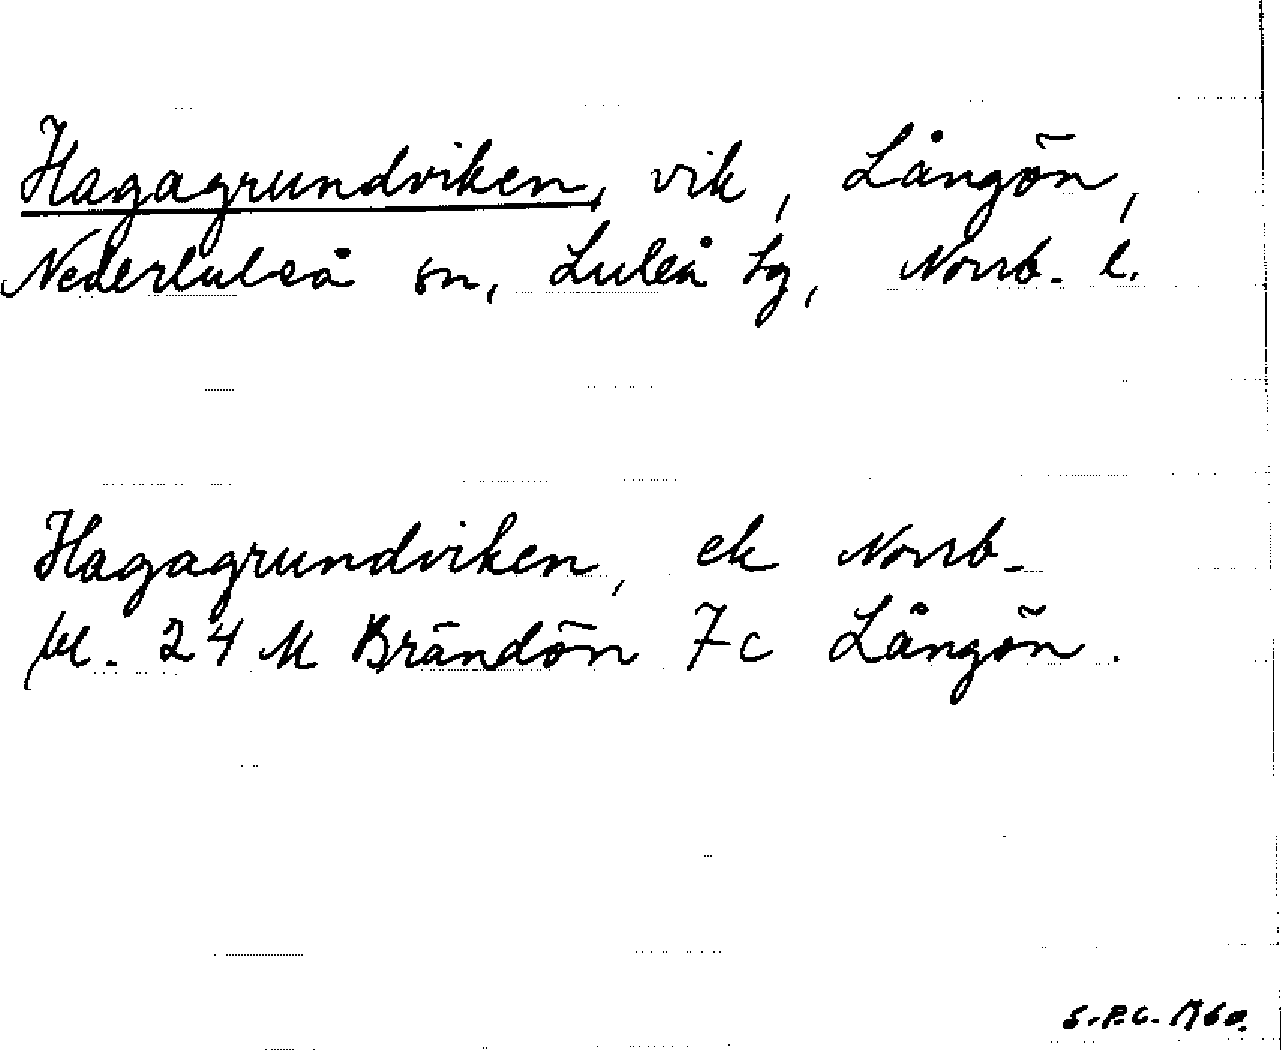 Hagagrundviken, vik, Långön,
Nederluleå sn, Luleå hg, Norrb. l.
Hagagrundviken, ek Norrb.
bl. 24 M Brändön 7c Långön.
S.P.C. 1960.